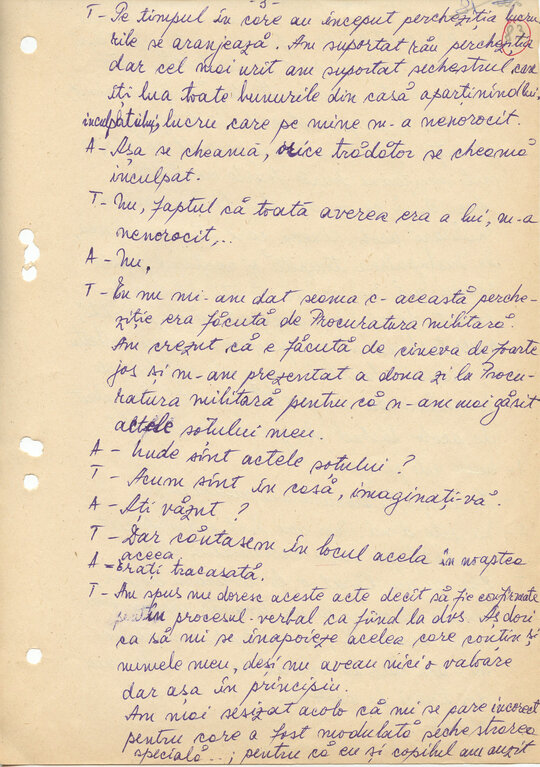 - 5 -
83
T - Pe timpul în care au început percheziția lucru
rile se aranjează. Am suportat rău percheziția
dar cel mai urît am suportat sechestrul care
îți lua toate bunurile din casă aparținîndului,
inculpatului, lucru care pe mine m-a nenorocit.
A - Așa se cheamă, orice trădător se cheamă
inculpat.
T - Nu, faptul că toată averea era a lui, m-a
nenorocit,..
A - Nu,
T - Eu nu mi-am dat seama c-această perche-
ziție era făcută de Procuratura militară.
Am crezut că e făcută de cineva de foarte
jos și m-am prezentat a doua zi la Procu-
ratura militară pentru că n-am mai găsit
actele sotului meu.
A - Unde sînt actele soțului?
T - Acum sînt în casă, imaginați-vă.
A - Ați văzut?
T - Dar căutasem în locul acela în noaptea
aceea.
A - Erați tracasată.
T - Am spus nu doresc aceste acte decît să fie confirmate
în procesul-verbal ca fiind la dvs. Aș dori
ca să mi se inapoieze acelea care conțin și
numele meu, deși nu aveau nici o valoare
dar așa în principiu.
Am mai sesizat acolo că mi se pare incorect
pentru care a fost modulată sechestrarea
specială...; pentru că eu și copilul am auzit